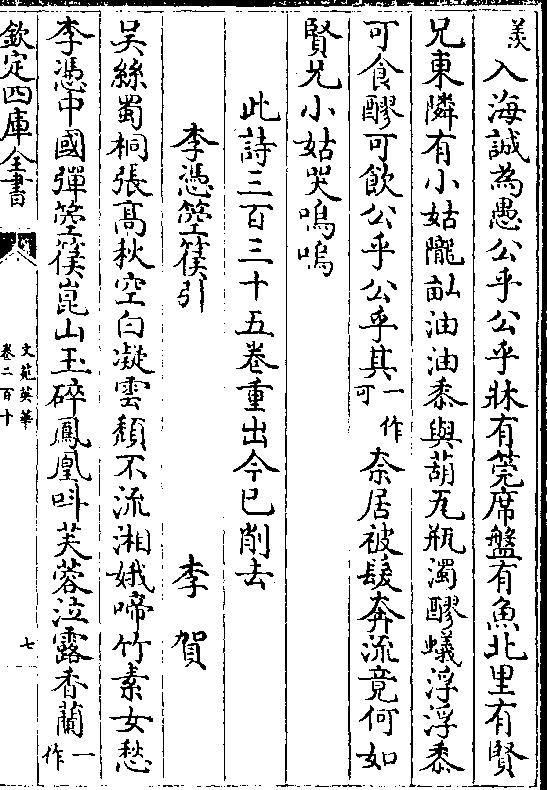 羙入海誠為愚公乎公乎牀有莞席盤有魚北里有賢
兄東隣有小姑隴畝油油黍與葫瓦瓶濁醪蟻浮浮黍
可食醪可飲公乎公乎其一作可奈居被髮奔流竟何如
賢兄小姑哭嗚嗚
此詩三百三十五卷重出今已削去
李憑箜篌引 李賀
吴絲蜀桐張髙秋空白凝雲頽不流湘娥啼竹素女愁
李憑中國彈箜篌崑山玉碎鳳凰呌芙蓉泣露香蘭一作
欽定四庫全書
文苑英華
卷二百十
七